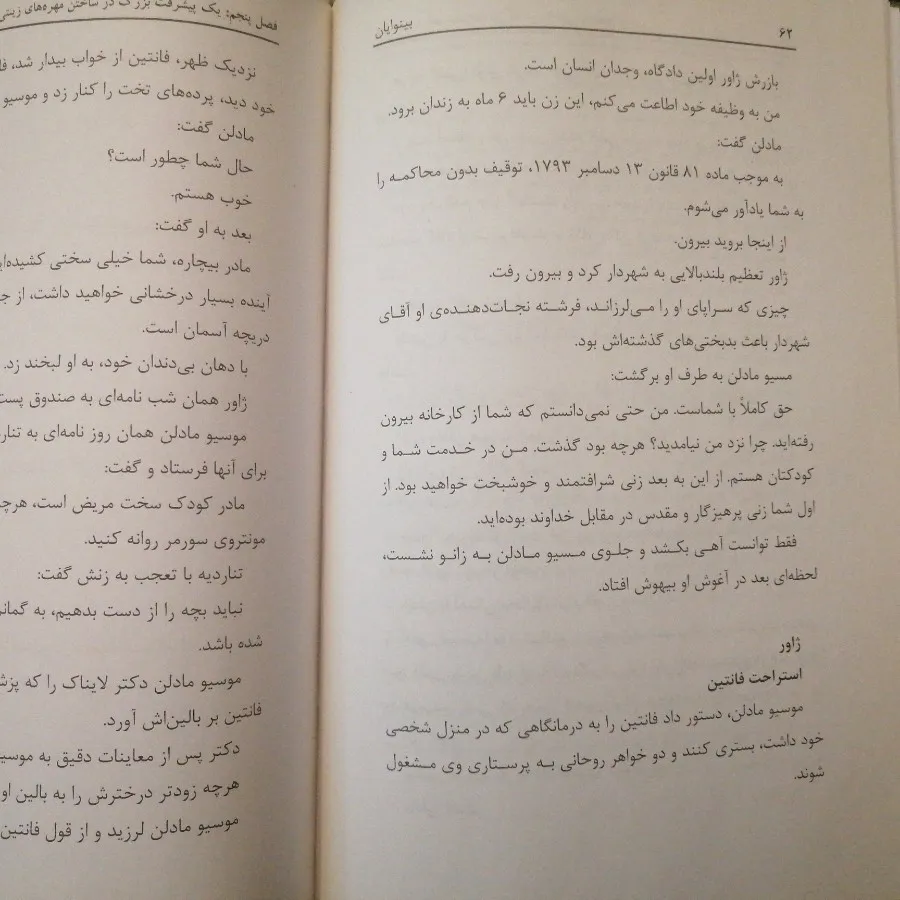 ۶۲
بینوایان
بازرش ژاور اولین دادگاه، وجدان انسان است.
من به وظیفه خود اطاعت می‌کنم، این زن باید ۶ ماه به زندان برود.
مادلن گفت:
به موجب ماده ۸۱ قانون ۱۳ دسامبر ۱۷۹۳، توقیف بدون محاکمه را
به شما یادآور می‌شوم.
از اینجا بروید بیرون.
ژاور تعظیم بلندبالایی به شهردار کرد و بیرون رفت.
چیزی که سراپای او را می‌لرزاند، فرشته نجات‌دهنده‌ی او آقای
شهردار باعث بدبختی‌های گذشته‌اش بود.
مسیو مادلن به طرف او برگشت:
حق کاملاً با شماست. من حتی نمی‌دانستم که شما از کارخانه بیرون
رفته‌اید. چرا نزد من نیامدید؟ هرچه بود گذشت. من در خدمت شما و
کودکتان هستم. از این به بعد زنی شرافتمند و خوشبخت خواهید بود. از
اول شما زنی پرهیزگار و مقدس در مقابل خداوند بوده‌اید.
فقط توانست آهی بکشد و جلوی مسیو مادلن به زانو نشست،
لحظه‌ای بعد در آغوش او بیهوش افتاد.
ژاور
استراحت فانتین
موسیو مادلن، دستور داد فانتین را به درمانگاهی که در منزل شخصی
خود داشت، بستری کنند و دو خواهر روحانی به پرستاری وی مشغول
شوند.
فصل پنجم: یک پیشرفت بزرگ در ساختن مهره‌های زینتی
نزدیک ظهر، فانتین از خواب بیدار شد،
خود دید، پرده‌های تخت را کنار زد و موسیو
مادلن گفت:
حال شما چطور است؟
خوب هستم.
بعد به او گفت:
مادر بیچاره، شما خیلی سختی کشیده‌اید
آینده بسیار درخشانی خواهید داشت، از
دریچه آسمان است.
با دهان بی‌دندان خود، به او لبخند زد.
ژاور همان شب نامه‌ای به صندوق پست
موسیو مادلن همان روز نامه‌ای به
برای آنها فرستاد و گفت:
مادر کودک سخت مریض است، هرچه
مونتروی سورمر روانه کنید.
تناردیه با تعجب به زنش گفت:
نباید بچه را از دست بدهیم، به
شده باشد.
موسیو مادلن دکتر لایناک را که
فانتین بر بالین‌اش آورد.
دکتر پس از معاینات دقیق به
هرچه زودتر درخترش را به بالین او
موسیو مادلن لرزید و از قول فانتین